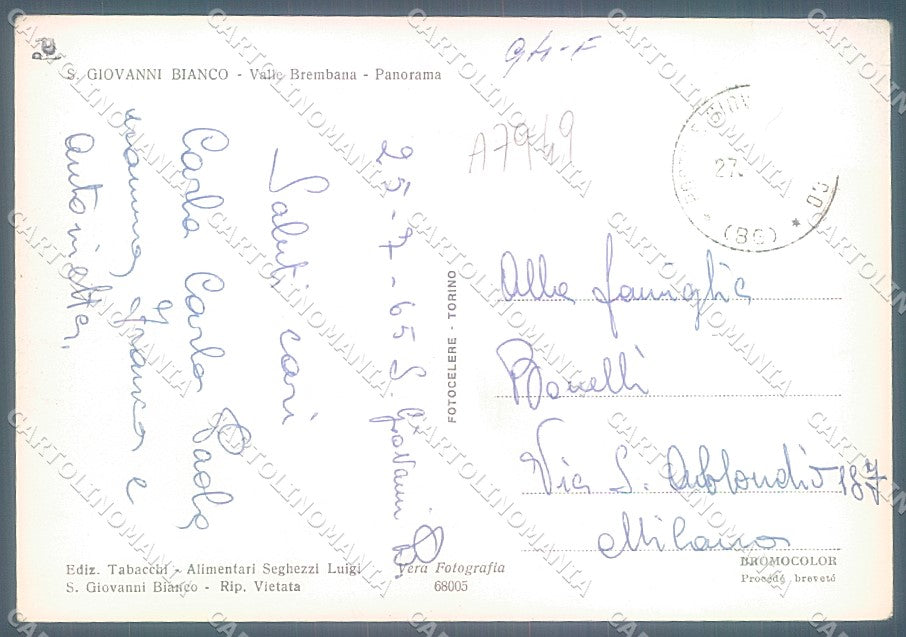 S. GIOVANNI BIANCO - Valle Brembana - Panorama
25-7-65 S. Giovanni B.
Saluti cari
Carla Carlo Paolo
mamma, Franco e
Antonietta.
A7949
FOTOCELERE - TORINO
27.
(BG)
Alla famiglia
Bonelli
Via S. Abbondio 187
Milano
Ediz. Tabacchi - Alimentari Seghezzi Luigi
S. Giovanni Bianco - Rip. Vietata
Vera Fotografia
68005
BROMOCOLOR
Procédé breveté
CARTOLINOMANIA